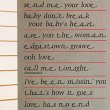 send me, your love,
baby don't break
your baby's heart
are you the woman
egotown, groove
ooh love
call me tonight
i've been missin' you
that's how it goes
love, has no end